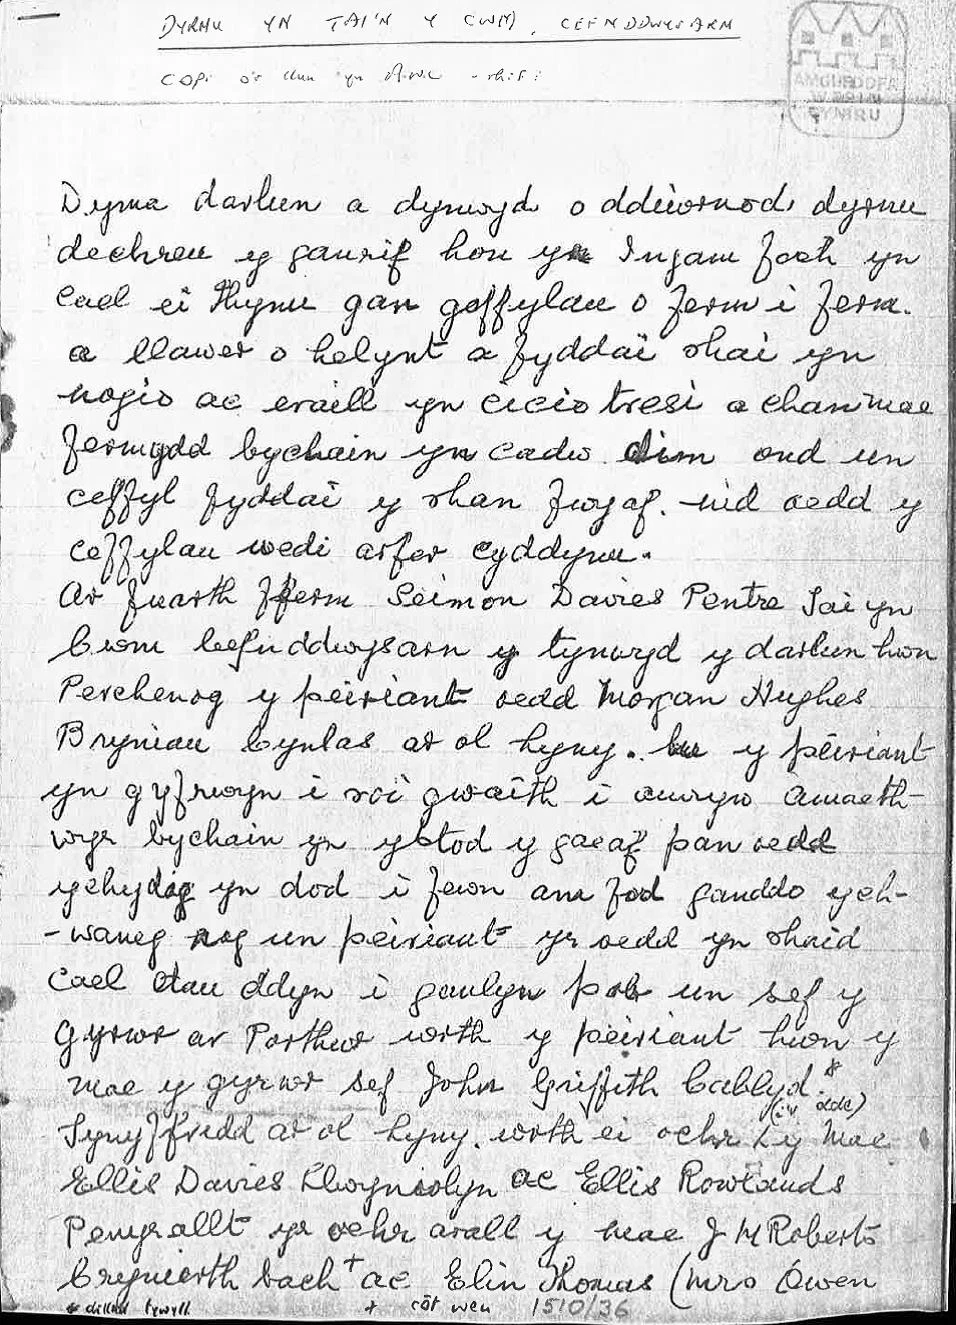 DYRNU YN TAI'N Y CWM, CEFNDDWYSARN
COPI o'r llun yn A.W.C. - rhif:
AMGUEDDFA
WERIN
CYMRU
Dyma darlun a dynwyd o ddiwornod dyrnu
dechreu y ganrif hon yn Injam fach yn
cael ei thynu gan geffylau o ferm i ferm.
a llawer o helynt a fyddai rhai yn
nogio ac eraill yn cicio tresi a chan mae
fermydd bychain yn cadw dim ond un
ceffyl fyddai y rhan fwyaf. nid oedd y
ceffylau wedi arfer cyddynu.
Ar fuarth fferm Seimon Davies Pentre Tai yn
Cwm Cefnddwysarn y tynwyd y darlun hwn
Perchenog y peiriant oedd Morgan Hughes
Bryniau Cynlas ar ol hyny. bu y peiriant
yn gyfrwyn i roi gwaith i amryw amaeth-
wyr bychain yn ystod y gaeaf pan oedd
ychydig yn dod i fewn am fod ganddo ych-
-waneg nog un peiriant yr oedd yn rhaid
cael dau ddyn i ganlyn pob un sef y
Gyrwr ar Porthwr wrth y peiriant hwn y
mae y gyrwr sef John Griffith Cablyd*
(i'r dde)
Tynyffridd ar ol hyny. wrth ei ochr Ly Mae
Ellis Davies Llwyniolyn ac Ellis Rowlands
Penyrallt yr ochr arall y mae J M Roberts
Crynierth bach + ac Elin Thomas (Mrs Owen
* dillad tywyll + côt wen 1510/36